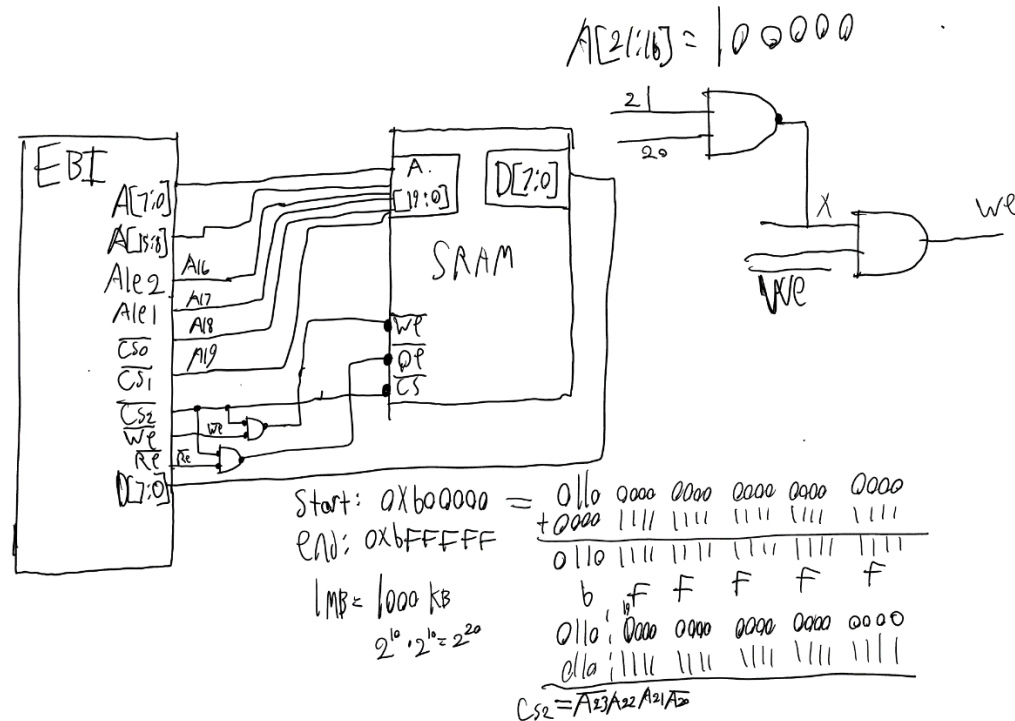 A[21:16] = 100000
21
20
X
we
W̅e̅
EBI
A[7:0]
A[15:8]
Ale2
Ale1
C̅s̅0̅
C̅s̅1̅
C̅s̅2̅
W̅e̅
R̅e̅
D[7:0]
A16
A17
A18
A19
W̅e̅
R̅e̅
A.
[19:0]
D[7:0]
SRAM
W̅e̅
O̅e̅
C̅S̅
Start: 0Xb00000 = 0110 0000 0000 0000 0000 0000
+0000 1111 1111 1111 1111 1111
end: 0XbFFFFF
0110 1111 1111 1111 1111 1111
b F F F F F
1MB = 1000 KB
2¹⁰ · 2¹⁰ = 2²⁰
19
0110 0000 0000 0000 0000 0000
0110 1111 1111 1111 1111 1111
Cs2 = A̅2̅3̅ A22 A21 A̅2̅0̅